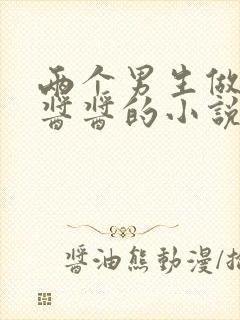 两个男生做
酱酱的小說
酱油熊動漫/